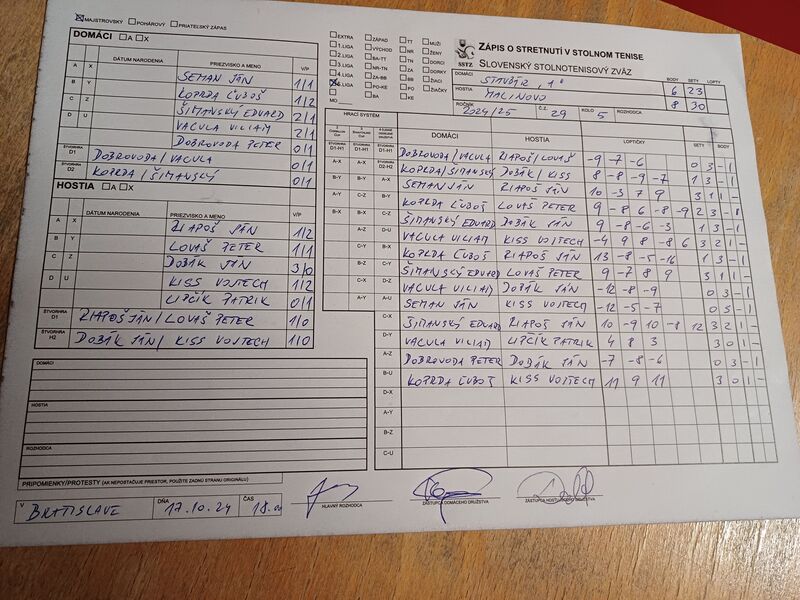 MAJSTROVSKÝ POHÁROVÝ PRIATEĽSKÝ ZÁPAS
DOMÁCI A X
DÁTUM NARODENIA PRIEZVISKO A MENO V/P
A X SEMAN JÁN 1/1
B Y KOPRDA ĽUBOŠ 1/2
C Z ŠIMANSKÝ EDUARD 2/1
VACULA VILIAM 2/1
DOBROVODA PETER 0/1
ŠTVORHRA D1 DOBROVODA/VACULA 0/1
ŠTVORHRA D2 KOPRDA/ŠIMANSKÝ 0/1
HOSTIA A X
DÁTUM NARODENIA PRIEZVISKO A MENO V/P
A X RIAPOŠ JÁN 1/2
B Y LOVAŠ PETER 1/1
C Z DOBÁK JÁN 3/0
D U KISS VOJTECH 1/2
LIPČÍK PATRIK 0/1
ŠTVORHRA D1 RIAPOŠ JÁN/LOVAŠ PETER 1/0
ŠTVORHRA H2 DOBÁK JÁN/KISS VOJTECH 1/0
DOMÁCI
HOSTIA
ROZHODCA
PRIPOMIENKY/PROTESTY (AK NEPOSTAČUJE PRIESTOR, POUŽITE ZADNÚ STRANU ORIGINÁLU)
V BRATISLAVE DŇA 17.10.24 ČAS 18.00
EXTRA ZÁPAD TT MUŽI
1.LIGA VÝCHOD NR ŽENY
2.LIGA BA-TT ZA DORCI
3.LIGA NR-TN DORKY
4.LIGA ZA-BB BB ŽIACI
5.LIGA PO-KE PO ŽIAČKY
BA KE
MO
SSTZ
ZÁPIS O STRETNUTÍ V STOLNOM TENISE
SLOVENSKÝ STOLNOTENISOVÝ ZVÄZ
BODY SETY LOPTY
DOMÁCI STAVBÁR "1" 6 23
HOSTIA MALINOVO 8 30
ROČNÍK 2024/25 Č.Z. 29 KOLO 5 ROZHODCA
HRACÍ SYSTÉM
DOMÁCI HOSTIA LOPTIČKY SETY BODY
DOBROVODA/VACULA RIAPOŠ/LOVAŠ -9 -7 -6 0 3 - 1
KOPRDA/ŠIMANSKÝ DOBÁK/KISS 8 -8 -9 -7 1 3 - 1
SEMAN JÁN RIAPOŠ JÁN 10 -3 7 9 3 1 1 -
KOPRDA ĽUBOŠ LOVAŠ PETER 9 -8 6 -8 -9 2 3 - 1
ŠIMANSKÝ EDUARD DOBÁK JÁN 9 -8 -6 -3 1 3 - 1
VACULA VILIAM KISS VOJTECH -4 9 8 -8 6 3 2 1 -
KOPRDA ĽUBOŠ RIAPOŠ JÁN 13 -8 -5 -16 1 3 - 1
ŠIMANSKÝ EDUARD LOVAŠ PETER 9 -7 8 9 3 1 1 -
VACULA VILIAM DOBÁK JÁN -12 -8 -9 0 3 - 1
SEMAN JÁN KISS VOJTECH -12 -5 -7 0 3 - 1
ŠIMANSKÝ EDUARD RIAPOŠ JÁN 10 -9 10 -8 12 3 2 1 -
VACULA VILIAM LIPČÍK PATRIK 4 8 3 3 0 1 -
DOBROVODA PETER DOBÁK JÁN -7 -8 -6 0 3 - 1
KOPRDA ĽUBOŠ KISS VOJTECH 11 9 11 3 0 1 -
C-X
D-Y
A-Z
B-U
D-X
A-Y
B-Z
C-U
HLAVNÝ ROZHODCA ZÁSTUPCA DOMÁCEHO DRUŽSTVA ZÁSTUPCA HOSŤUJÚCEHO DRUŽSTVA